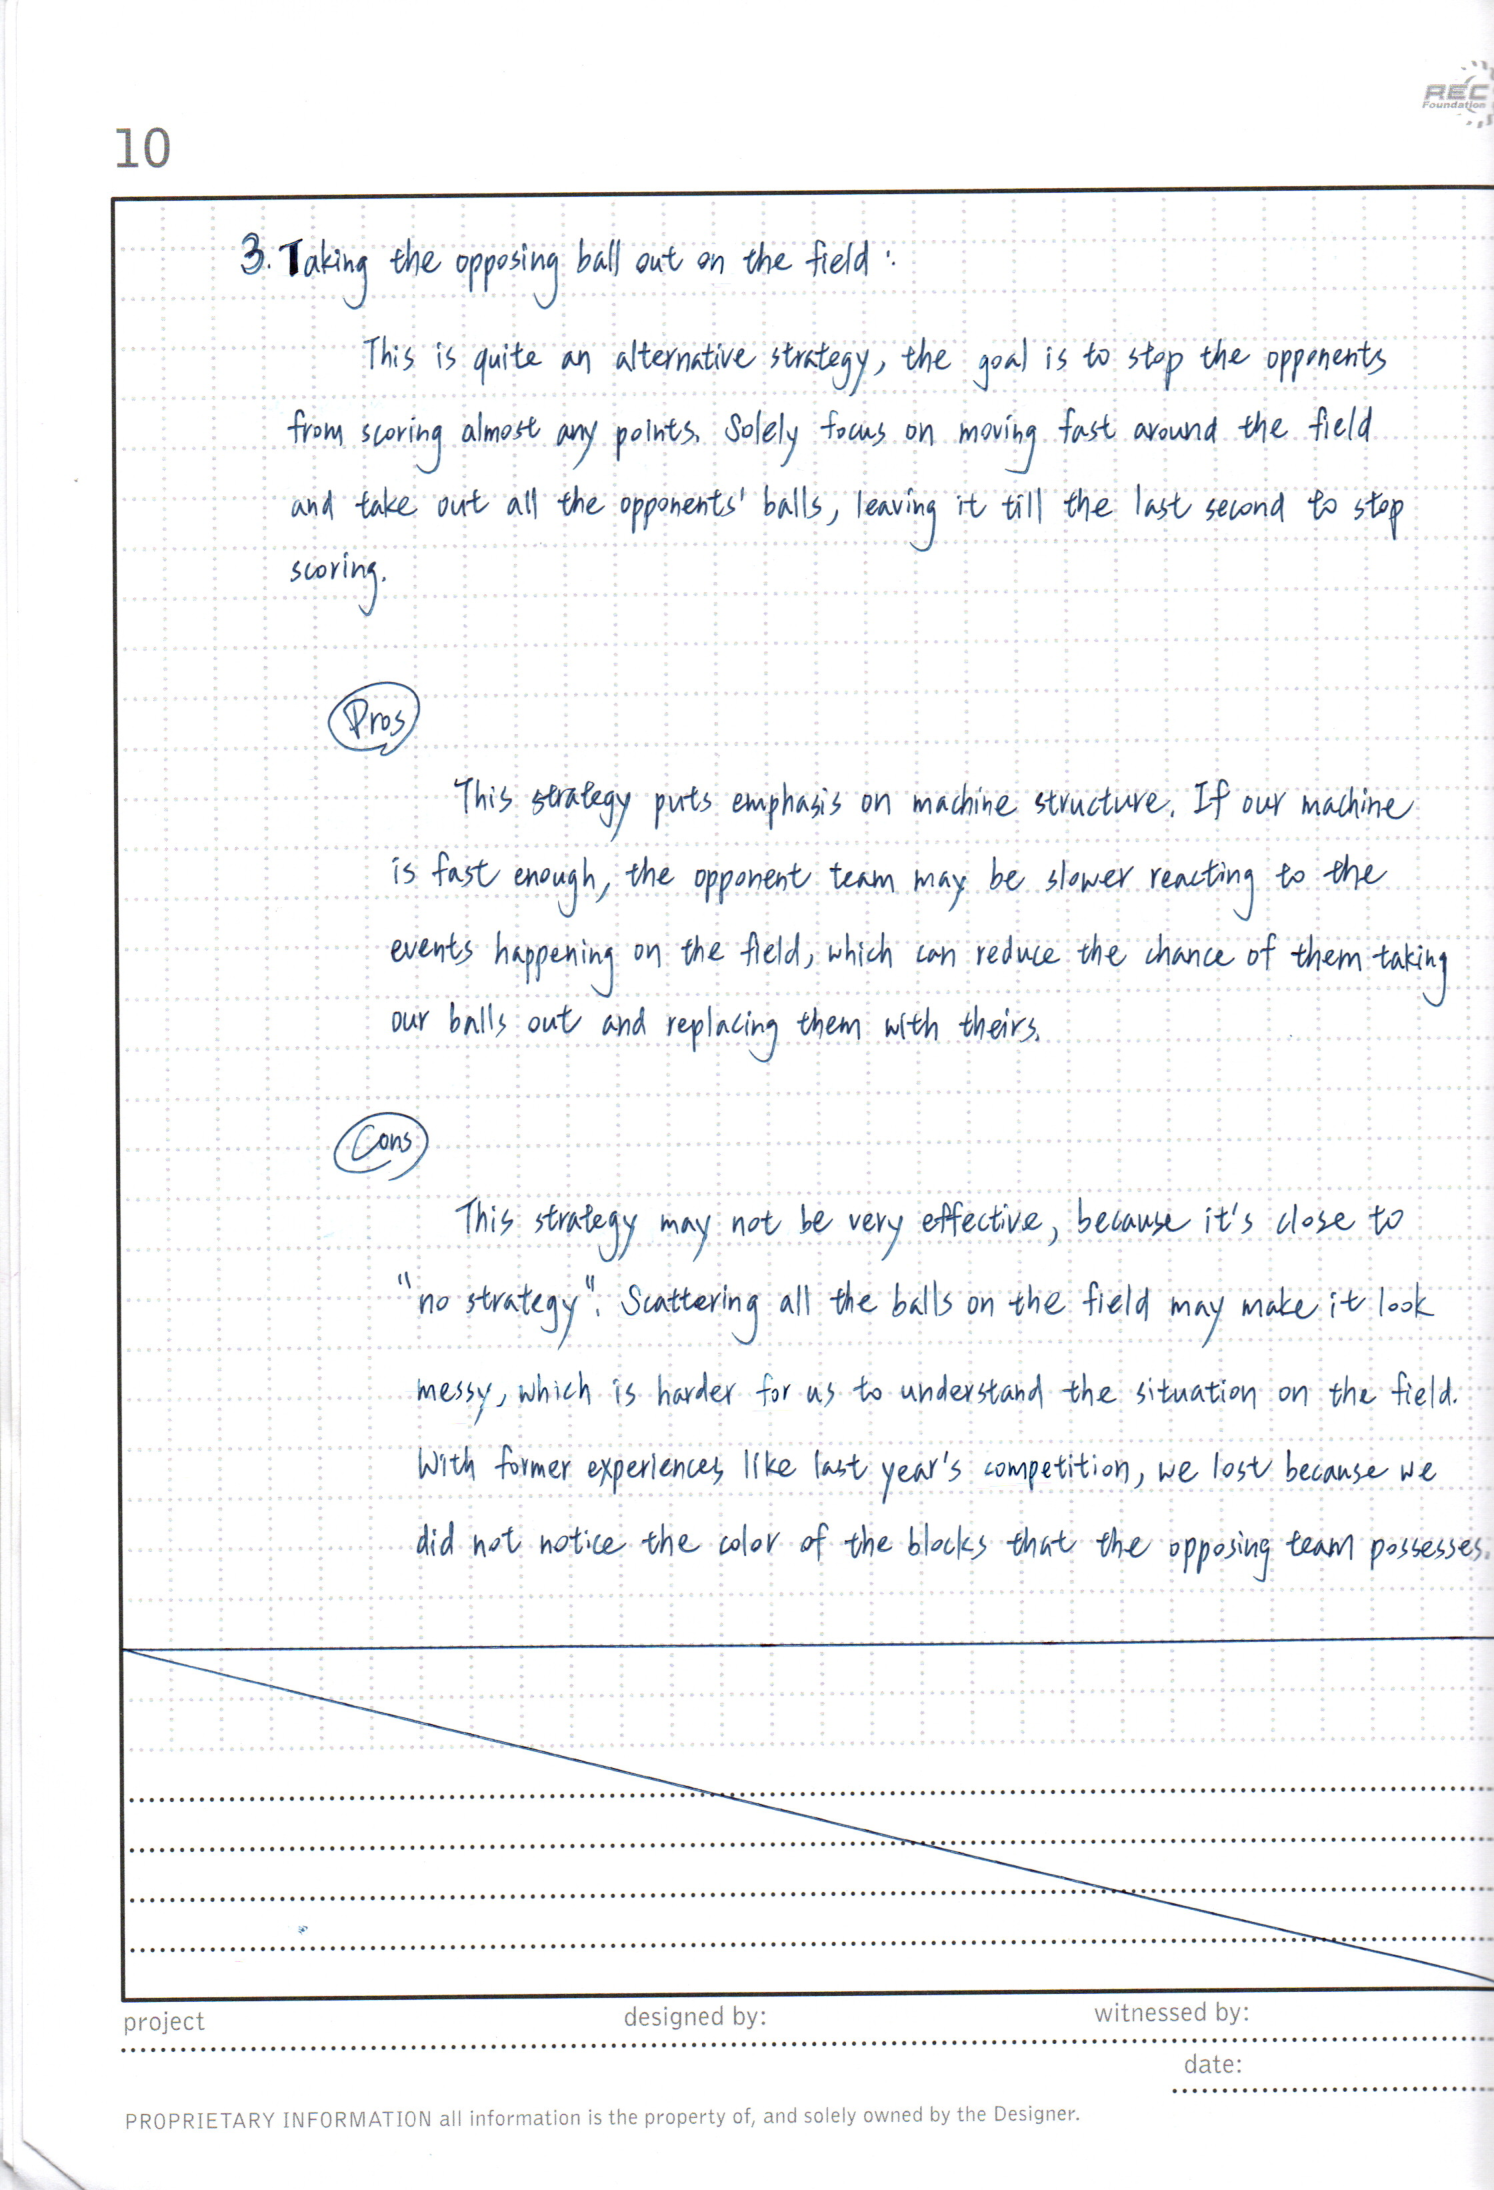 REC
Foundation
10
3. Taking the opposing ball out on the field :
This is quite an alternative strategy, the goal is to stop the opponents
from scoring almost any points. Solely focus on moving fast around the field
and take out all the opponents' balls, leaving it till the last second to stop
scoring.
Pros
This strategy puts emphasis on machine structure. If our machine
is fast enough, the opponent team may be slower reacting to the
events happening on the field, which can reduce the chance of them taking
our balls out and replacing them with theirs.
Cons
This strategy may not be very effective, because it's close to
"no strategy". Scattering all the balls on the field may make it look
messy, which is harder for us to understand the situation on the field.
With former experiences like last year's competition, we lost because we
did not notice the color of the blocks that the opposing team possesses.
project designed by: witnessed by:
date:
PROPRIETARY INFORMATION all information is the property of, and solely owned by the Designer.